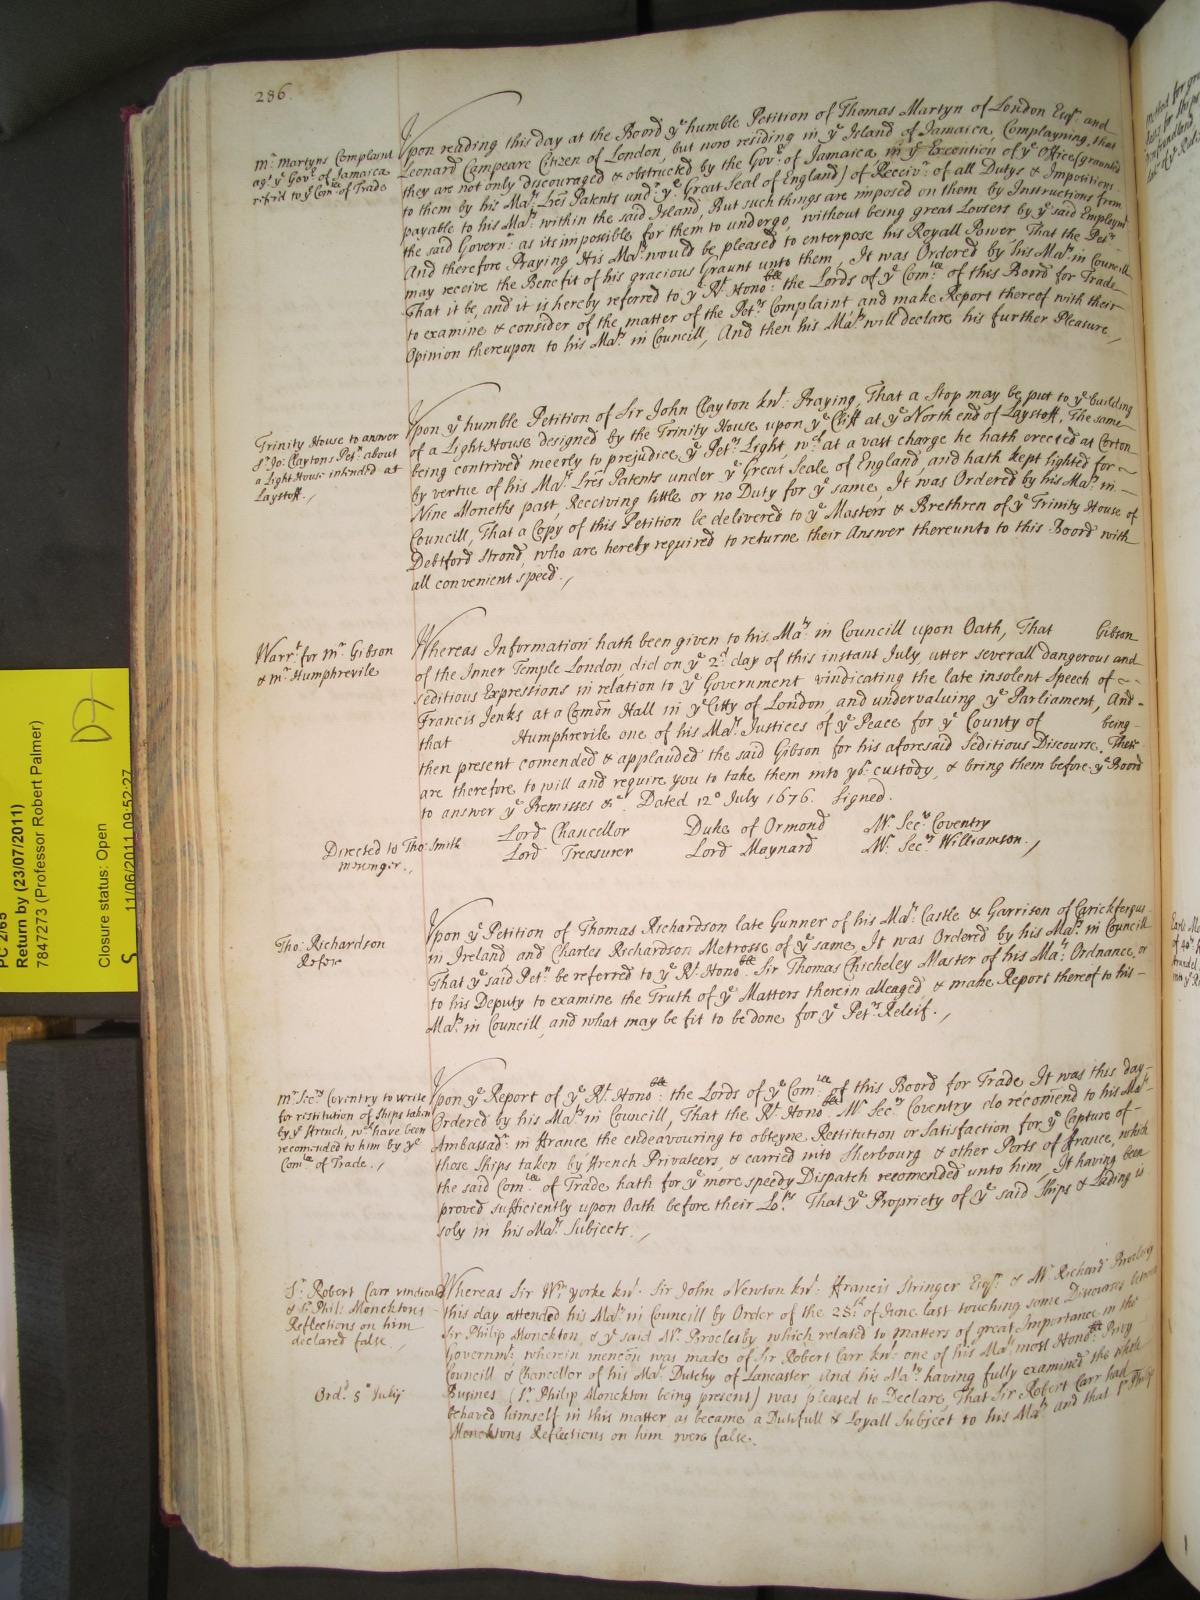 286.
Mr. Martyns Complaint
agt. ye Govr. of Jamaica
refer'd to ye Comtee. of Trade
Upon reading this day at the Board ye humble Petition of Thomas Martyn of London Esqr. and
Leonard Compeare Citizen of London, but now residing in ye Island of Jamaica, Complayning, that
they are not only discouraged & obstructed by the Govr. of Jamaica in ye Execution of ye Office (graunted
to them by his Mats. Lres Patents undr. ye Great Seal of England) of Receivrs. of all Dutys & Impositions
payable to his Maty. within the said Island, But such things are imposed on them by Instructions from
the said Governr. as its impossible for them to undergo, without being great Loosers by ye said Employmt
And therefore Praying His Maty. would be pleased to enterpose his Royall Power That the Petrs.
may receive the Benefit of his gracious Graunt unto them, It was Ordered by his Maty. in Councill
That it be, and it is hereby referred to ye Rt. Honoble. the Lords of ye Comtee. of this Board for Trade
to examine & consider of the matter of the Petrs. Complaint and make Report thereof with their
Opinion thereupon to his Maty. in Councill, And then his Maty. will declare his further Pleasure./
Trinity House to answer
Sr. Jo: Claytons Petn. about
a Light House intended at
Laystoff./
Upon ye humble Petition of Sir John Clayton knt. Praying, That a Stop may be put to ye building
of a Light House designed by the Trinity House upon ye Cliff at ye North end of Laystoff, The same
being contrived meerly to prejudice ye Petrs. Light, wch. at a vast charge he hath erected at Corton
by vertue of his Mats. Lres Patents under ye Great Seale of England, and hath kept lighted for
Nine Moneths past, Receiving little or no Duty for ye same, It was Ordered by his Maty. in
Councill, That a Copy of this Petition be delivered to ye Masters & Brethren of ye Trinity House of
Debtford Strond, who are hereby required to returne their Answer thereunto to this Board with
all convenient speed./
Warrt. for Mr. Gibson
& Mr. Humphrevile
Whereas Information hath been given to his Maty. in Councill upon Oath, That Gibson
of the Inner Temple London, did on ye 2d. day of this instant July, utter severall dangerous and
seditious Expressions in relation to ye Government vindicating the late insolent Speech of
Francis Jenks at a Comõn Hall in ye Citty of London, and undervaluing ye Parliament, And
that Humphrevile one of his Mats. Justices of ye Peace for ye County of being
then present comended & applauded the said Gibson for his aforesaid Seditious Discourse, These
are therefore to will and require you to take them into yor. custody, & bring them before ye Board
to answer ye Premisses &c. Dated 12o July 1676. Signed.
Lord Chancellor Duke of Ormond Mr. Secry. Coventry
Lord Treasurer Lord Maynard Mr. Secry. Williamson./
Directed to Tho: Smith
Messenger./
Tho: Richardson
Refere
Upon ye Petition of Thomas Richardson late Gunner of his Mats. Castle & Garrison of Carickfergus
in Ireland and Charles Richardson Metrosse of ye same, It was Ordered by his Maty. in Councill
That ye said Petn. be referred to ye Rt. Honoble. Sir Thomas Chicheley Master of his Mats. Ordnance, or
to his Deputy to examine the Truth of ye Matters therein alleaged & make Report thereof to his
Maty. in Councill, and what may be fit to be done for ye Petrs. Releif./
Mr. Secry. Coventry to write
for restitution of Ships taken
by ye ffrench, wch. have been
recomended to him by ye
Comtee. of Trade./
Upon ye Report of ye Rt. Honoble. the Lords of ye Comtee. of this Board for Trade It was this day
Ordered by his Maty. in Councill, That the Rt. Honoble. Mr. Secry. Coventry do recomend to his Mats.
Ambassadr. in ffrance the endeavouring to obteyne Restitution or Satisfaction for ye Capture of
those Ships taken by ffrench Privateers, & carried into Sherbourg & other Ports of ffrance, which
the said Comtee. of Trade hath for ye more speedy Dispatch recomended unto him, It having been
proved sufficiently upon Oath before their Lops. That ye Propriety of ye said Ships & Lading is
soly in his Mats. Subjects./
Sr. Robert Carr vindicated
& Sr. Phil: Moncktons
Reflections on him
declared false./
Ordr. 5o July
Whereas Sir Wm. Yorke knt. Sir John Newton knt. ffrancis Stringer Esqr. & Mr. Richard Broclesby
this day attended his Maty. in Councill by Order of the 28th. of June last touching some Discourse between
Sir Philip Monckton, & ye said Mr. Broclesby which related to matters of great Importance in the
Governmt. wherein mencõn was made of Sir Robert Carr knt. one of his Mats. most Honoble. Privy
Councill & Chancellor of his Mats. Dutchy of Lancaster, And his Maty. having fully examined the whole
Busines (Sr. Philip Monckton being present) was pleased to Declare, That Sir Robert Carr had
behaved himself in this matter as became a Dutifull & Loyall Subject to his Maty. and that Sr. Philip
Moncktons Reflections on him were false.
PC 2/65
Return by (23/07/2011)
7847273 (Professor Robert Palmer)
Closure status: Open
11/06/2011 09:52:27